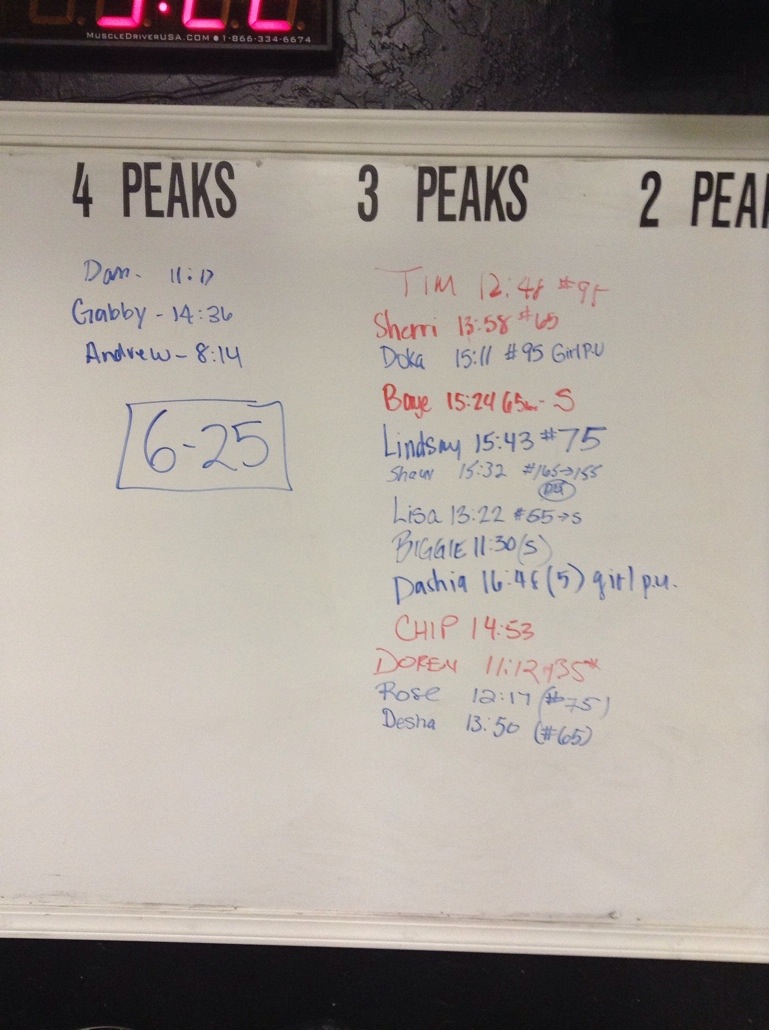 MUSCLEDRIVERUSA.COM ● 1-866-334-6674
4 PEAKS
3 PEAKS
2 PEA
Dan - 11:17
Gabby - 14:36
Andrew - 8:14
6-25
TIM 12:48 #95
Sherri 13:58 #65
Doka 15:11 #95 Girl P.U
Baye 15:24 65 - S
Lindsay 15:43 #75
Shaun 15:32 #165→155
Lisa 13:22 #55→S
BIGGIE 11:30 (S)
Dashia 16:48 (S) girl p.u.
CHIP 14:53
DOREN 11:12 135#
Rose 12:17 (#75)
Desha 13:50 (#65)